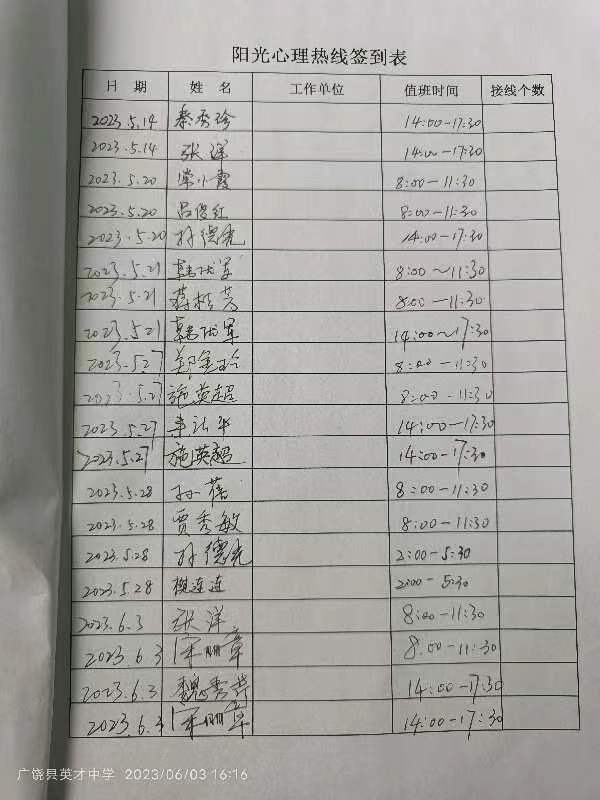 阳光心理热线签到表
日 期 姓 名 工作单位 值班时间 接线个数
2023.5.14 秦秀珍 14:00-17:30
2023.5.14 张洋 14:00-17:30
2023.5.20 常小霞 8:00-11:30
2023.5.20 吕俊红 8:00-11:30
2023.5.20 孙德先 14:00-17:30
2023.5.21 8:00~11:30
2023.5.21 蒋桂芳 8:00-11:30
2023.5.21 14:00~17:30
2023.5.27 8:00-11:30
2023.5.27 施英超 8:00-11:30
2023.5.27 14:00-17:30
2023.5.27 施英超 14:00-17:30
2023.5.28 孙蓓 8:00-11:30
2023.5.28 贾秀敏 8:00-11:30
2023.5.28 孙德先 2:00-5:30
2023.5.28 连连 2:00-5:30
2023.6.3 张洋 8:00-11:30
2023.6.3 8:00-11:30
2023.6.3 魏秀萍 14:00-17:30
2023.6.3 14:00-17:30
广饶县英才中学 2023/06/03 16:16